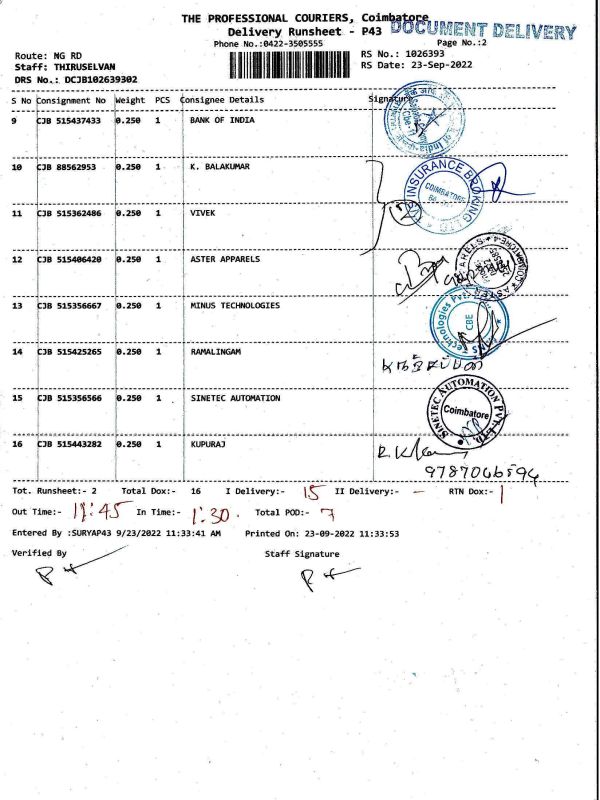 THE PROFESSIONAL COURIERS, Coimbatore
DOCUMENT DELIVERY
Delivery Runsheet - P43
Phone No.:0422-3505555
Page No.:2
Route: NG RD
RS No.: 1026393
Staff: THIRUSELVAN
RS Date: 23-Sep-2022
DRS No.: DCJB102639302
S No Consignment No Weight PCS Consignee Details Signature
9 CJB 515437433 0.250 1 BANK OF INDIA
10 CJB 88562953 0.250 1 K. BALAKUMAR
INSURANCE BROKING
COIMBATORE
11 CJB 515362486 0.250 1 VIVEK
12 CJB 515406420 0.250 1 ASTER APPARELS
13 CJB 515356667 0.250 1 MINUS TECHNOLOGIES
CBE
14 CJB 515425265 0.250 1 RAMALINGAM
15 CJB 515356566 0.250 1 SINETEC AUTOMATION
SINETEC AUTOMATION PVT. LTD.
Coimbatore
16 CJB 515443282 0.250 1 KUPURAJ
9787046594
Tot. Runsheet:- 2 Total Dox:- 16 I Delivery:- 15 II Delivery:- - RTN Dox:- 1
Out Time:- 11:45 In Time:- 1:30. Total POD:- 7
Entered By :SURYAP43 9/23/2022 11:33:41 AM Printed On: 23-09-2022 11:33:53
Verified By Staff Signature